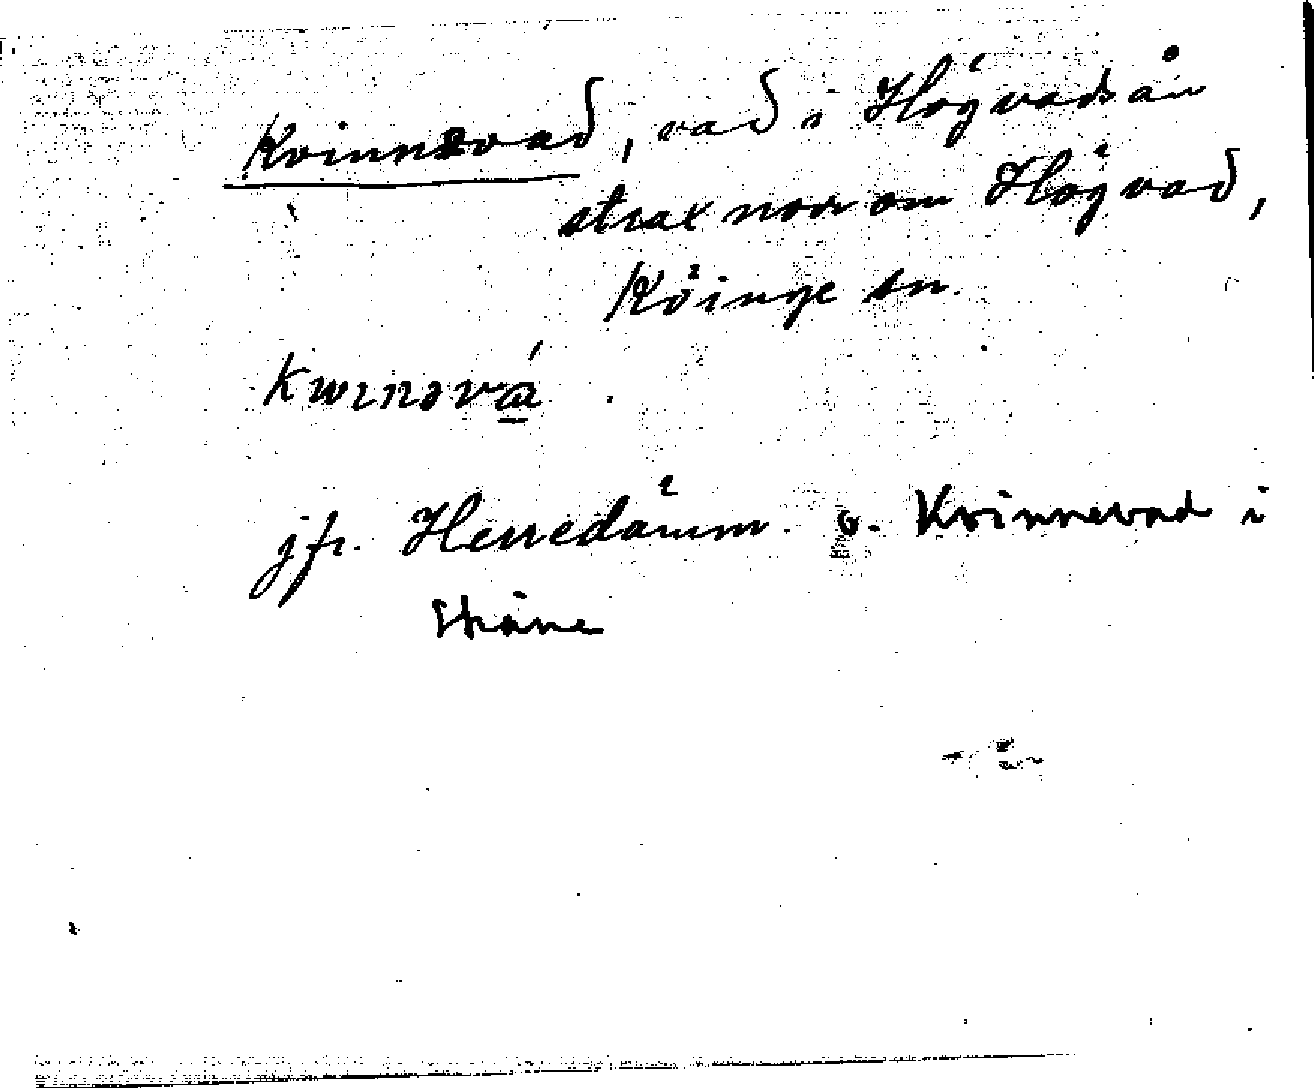 Kvinnevad, vad i Högvadsån
strax norr om Högvad,
Köinge sn.
kwɪnəvá
jfr. Herredämm. o. Kvinnevad i
Skåne